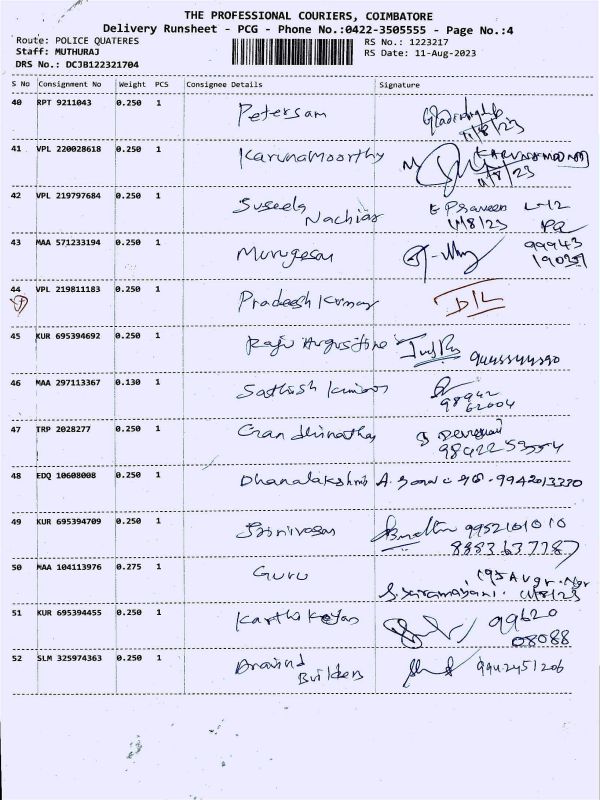 THE PROFESSIONAL COURIERS, COIMBATORE
Delivery Runsheet - PCG - Phone No.:0422-3505555 - Page No.:4
Route: POLICE QUATERES
RS No.: 1223217
Staff: MUTHURAJ
RS Date: 11-Aug-2023
DRS No.: DCJB122321704
S No Consignment No Weight PCS Consignee Details Signature
40 RPT 9211043 0.250 1 Petersam
11/8/23
41 VPL 220028618 0.250 1 Karunamoorthy
11/8/23
42 VPL 219797684 0.250 1 Suseela
Nachiar
11/8/23
43 MAA 571233194 0.250 1 Murugesan
99943
44 VPL 219811183 0.250 1 Pradeesh Kumar D/L
45 KUR 695394692 0.250 1 Raju Augustine
46 MAA 297113367 0.130 1 Sathish Kumar
98942
62004
47 TRP 2028277 0.250 1 Gandhinathan
48 EDQ 10608008 0.250 1 Dhanalakshmi 9942013230
49 KUR 695394709 0.250 1 Srinivasan 9952101010
50 MAA 104113976 0.275 1 Guru
11/8/23
51 KUR 695394455 0.250 1 99620
08088
52 SLM 325974363 0.250 1 Aravind
Builders
9942451206